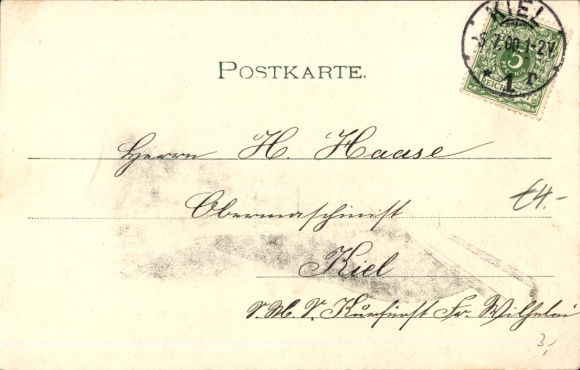 KIEL
-5.7.00.1-2V.
* 1 c
5
POSTKARTE.
Herrn H. Haase
€4.-
Obermaschinist
Kiel
S. M. S. Kurfürst Fr. Wilhelm
3,